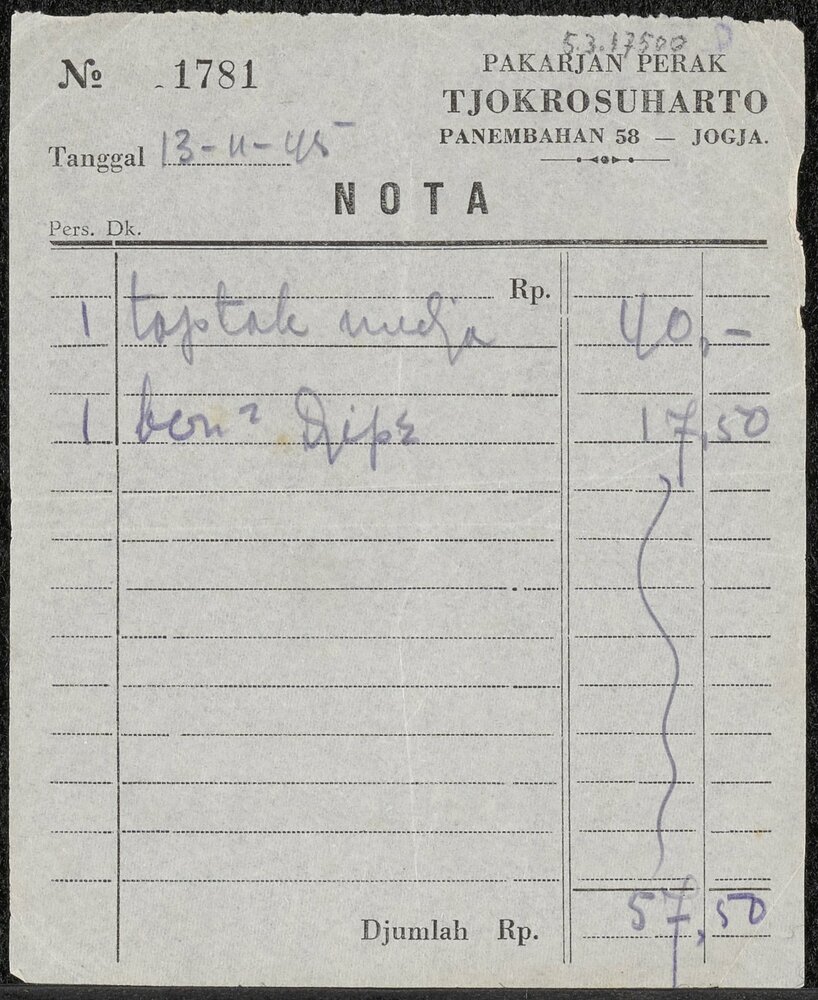 53.17500
PAKARJAN PERAK
№ 1781
TJOKROSUHARTO
PANEMBAHAN 58 — JOGJA.
Tanggal 13-11-45
NOTA
Pers. Dk.
Rp.
1 taptak medja 40,-
1 bon² 17,50
Djumlah Rp. 57,50